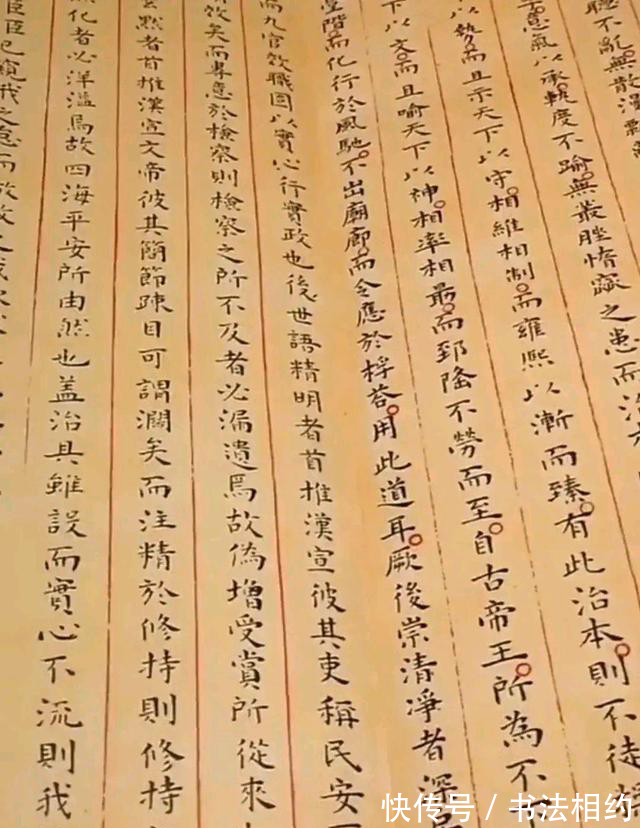 聰不亂無散漫
意氣以承執度不踰無叢脞惰窳之患而治本
以勢而且示天下以守相維相制而雍熙以漸而臻有此治本則不徒
下以文而且喻天下以神相率相最而郅隆不勞而至自古帝王所為不
堂階而化行於風馳不出廟廊而令應於桴荅用此道耳厥後崇清凈者深
而九官效職固以實心行實政也後世語精明者首推漢宣彼其吏稱民安
飭矣而專意於檢察則檢察之所不及者必漏遺焉故偽增受賞所從來
默者首推漢宣文帝彼其簡節疎目可謂濶矣而注精於修持則修持
化者必洋溢焉故四海平安所由然也蓋治具雖設而實心不流則我
臣臣已窺我之怠而
快传号 / 书法相约